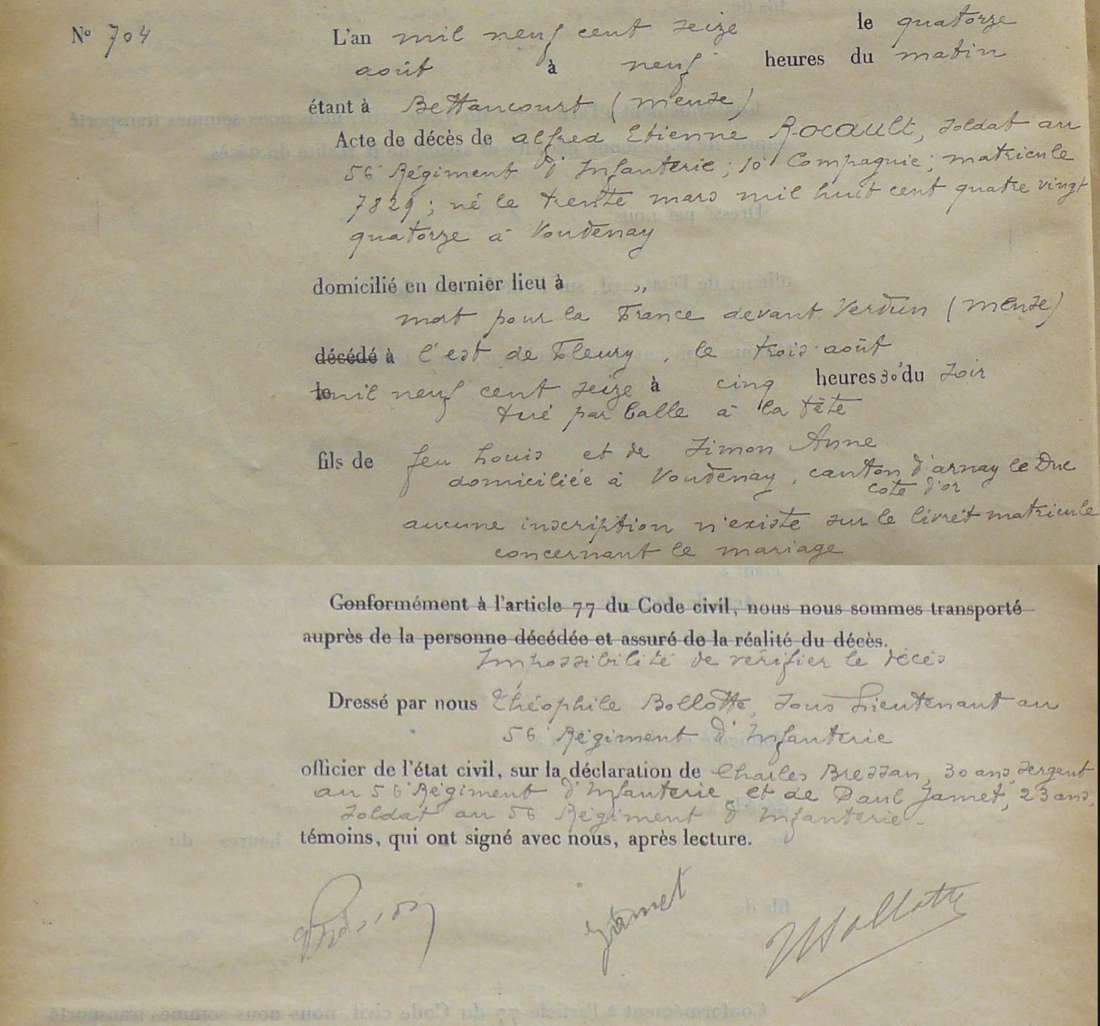 N° 704 L'an mil neuf cent seize le quatorze
août à neuf heures du matin
étant à Bettancourt (Meuse)
Acte de décès de Alfred Etienne Rocault, soldat au
56 Régiment d'Infanterie; 10 Compagnie; matricule
7829; né le trente mars mil huit cent quatre vingt
quatorze à Voudenay
domicilié en dernier lieu à „
mort pour la France devant Verdun (Meuse)
décédé à l'est de Fleury, le trois août
le mil neuf cent seize à cinq heures 30' du soir
tué par balle à la tête
fils de feu Louis et de Simon Anne
domiciliée à Voudenay, canton d'Arnay le Duc
cote d'or
aucune inscription n'existe sur le livret matricule
concernant le mariage
Conformément à l'article 77 du Code civil, nous nous sommes transporté
auprès de la personne décédée et assuré de la réalité du décès.
Impossibilité de vérifier le décès
Dressé par nous Théophile Bollotte, Sous Lieutenant au
56 Régiment d'Infanterie
officier de l'état civil, sur la déclaration de Charles Bressan, 30 ans, sergent
au 56 Régiment d'Infanterie et de Paul Jamet, 23 ans,
soldat au 56 Régiment d'Infanterie.
témoins, qui ont signé avec nous, après lecture.
Jamet Bollotte